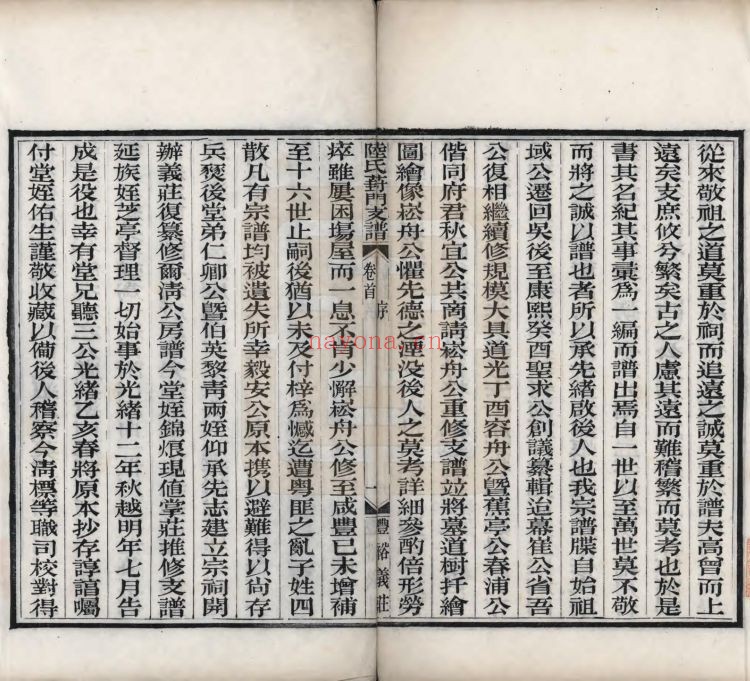 從來敬祖之道莫重於祠而追遠之誠莫重於譜夫高曾而上
遠矣支庶攸分繁矣古之人慮其遠而難稽繁而莫考也於是
書其名紀其事彙爲一編而譜出焉自一世以至萬世莫不敬
而將之誠以譜也者所以承先緒啟後人也我宗譜牒自始祖
域公遷回吳後至康熙癸酉聖求公創議纂輯迨幕崔公省吾
公復相繼續修規模大具道光丁酉容舟公暨蕉亭公春浦公
偕同府君秋宜公共商請崧舟公重修支譜並將墓道樹扦繪
圖繪像崧舟公懼先德之湮没後人之莫考詳細參酌倍形勞
陸氏葑門支譜
卷首
序
一
豐裕義莊
瘁雖屢困塲屋而一息不肯少懈崧舟公修至咸豐己未增補
至十六世止嗣後猶以未及付梓爲憾迄遭粤匪之亂子姓四
散凡有宗譜均被遺失所幸毅安公原本擕以避難得以尙存
兵燹後堂弟仁卿公曁伯英黎靑兩姪仰承先志建立宗祠開
辦義莊復纂修爾淸公房譜今堂姪錦烺現値掌莊推修支譜
延族姪芝亭督理一切始事於光緒十二年秋越明年七月告
成是役也幸有堂兄聽三公光緒乙亥春將原本抄存諄諄囑
付堂姪佑生謹敬收藏以備後人稽察今淸標等職司校對得
nayona.cn